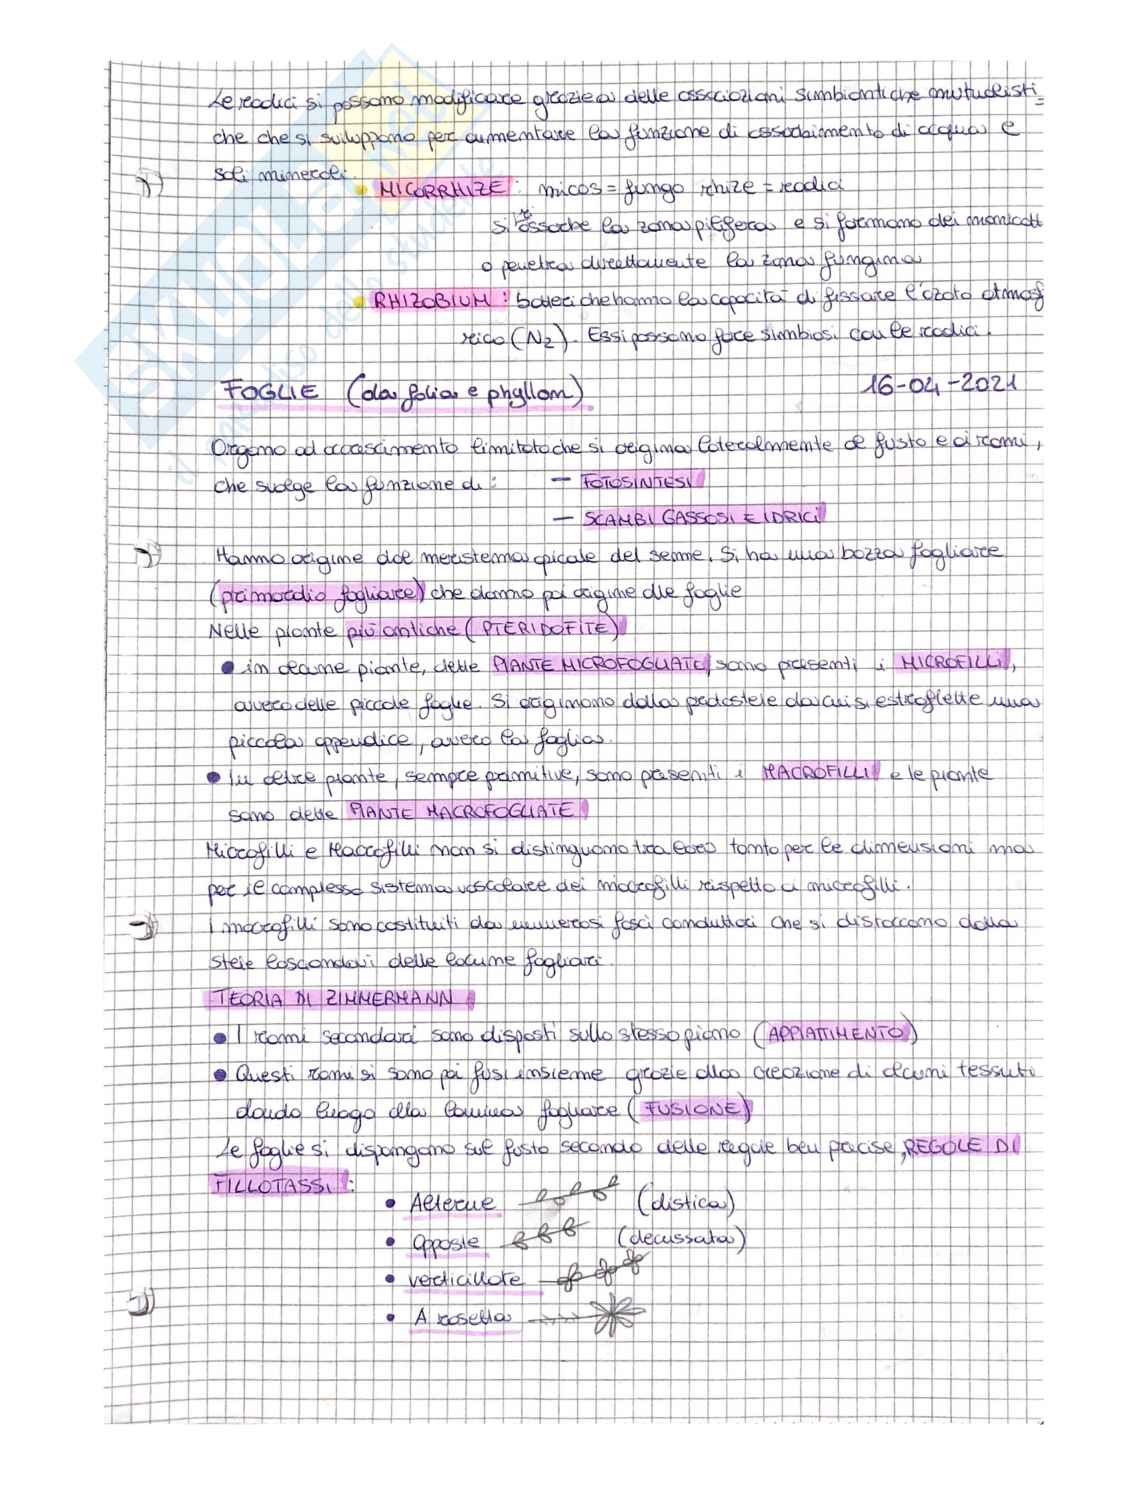 Le radici si possono modificare grazie a delle associazioni simbiontiche mutualisti=
che che si sviluppano per aumentare la funzione di assorbimento di acqua e
sali minerali.
MICORRHIZE : micos = fungo rhize = radici
si associa la zona pilifera e si formano dei manicotti
o penetra direttamente la zona fungina
RHIZOBIUM : batteri che hanno la capacità di fissare l'azoto atmosf
rico (N2). Essi possono fare simbiosi con le radici.
FOGLIE (da folia e phyllon) 16-04-2021
Organo ad accrescimento limitato che si origina lateralmente al fusto e ai rami,
che svolge la funzione di : — FOTOSINTESI
— SCAMBI GASSOSI E IDRICI
Hanno origine dal meristema apicale del seme. Si ha una bozza fogliare
(primordio fogliare) che danno poi origine alle foglie
Nelle piante più antiche (PTERIDOFITE)
• in alcune piante, delle PIANTE MICROFOGLIATE, sono presenti i MICROFILLI,
ovvero delle piccole foglie. Si originano dalla protostele da cui si estroflette una
piccola appendice, ovvero la foglia.
• In altre piante, sempre primitive, sono presenti i MACROFILLI e le piante
sono dette PIANTE MACROFOGLIATE
Microfilli e Macrofilli non si distinguono tra loro tanto per le dimensioni ma
per il complesso sistema vascolare dei macrofilli rispetto ai microfilli.
I macrofilli sono costituiti da numerosi fasci conduttori che si distaccano dalla
stele lasciandovi delle lacune fogliari.
TEORIA DI ZIMMERMANN
• I rami secondari sono disposti sullo stesso piano (APPIATTIMENTO)
• Questi rami si sono poi fusi insieme grazie alla creazione di alcuni tessuti
dando luogo alla lamina fogliare (FUSIONE)
Le foglie si dispongono sul fusto secondo delle regole ben precise, REGOLE DI
FILLOTASSI :
• Alterne (distica)
• Opposte (decussata)
• verticillate
• A rosetta